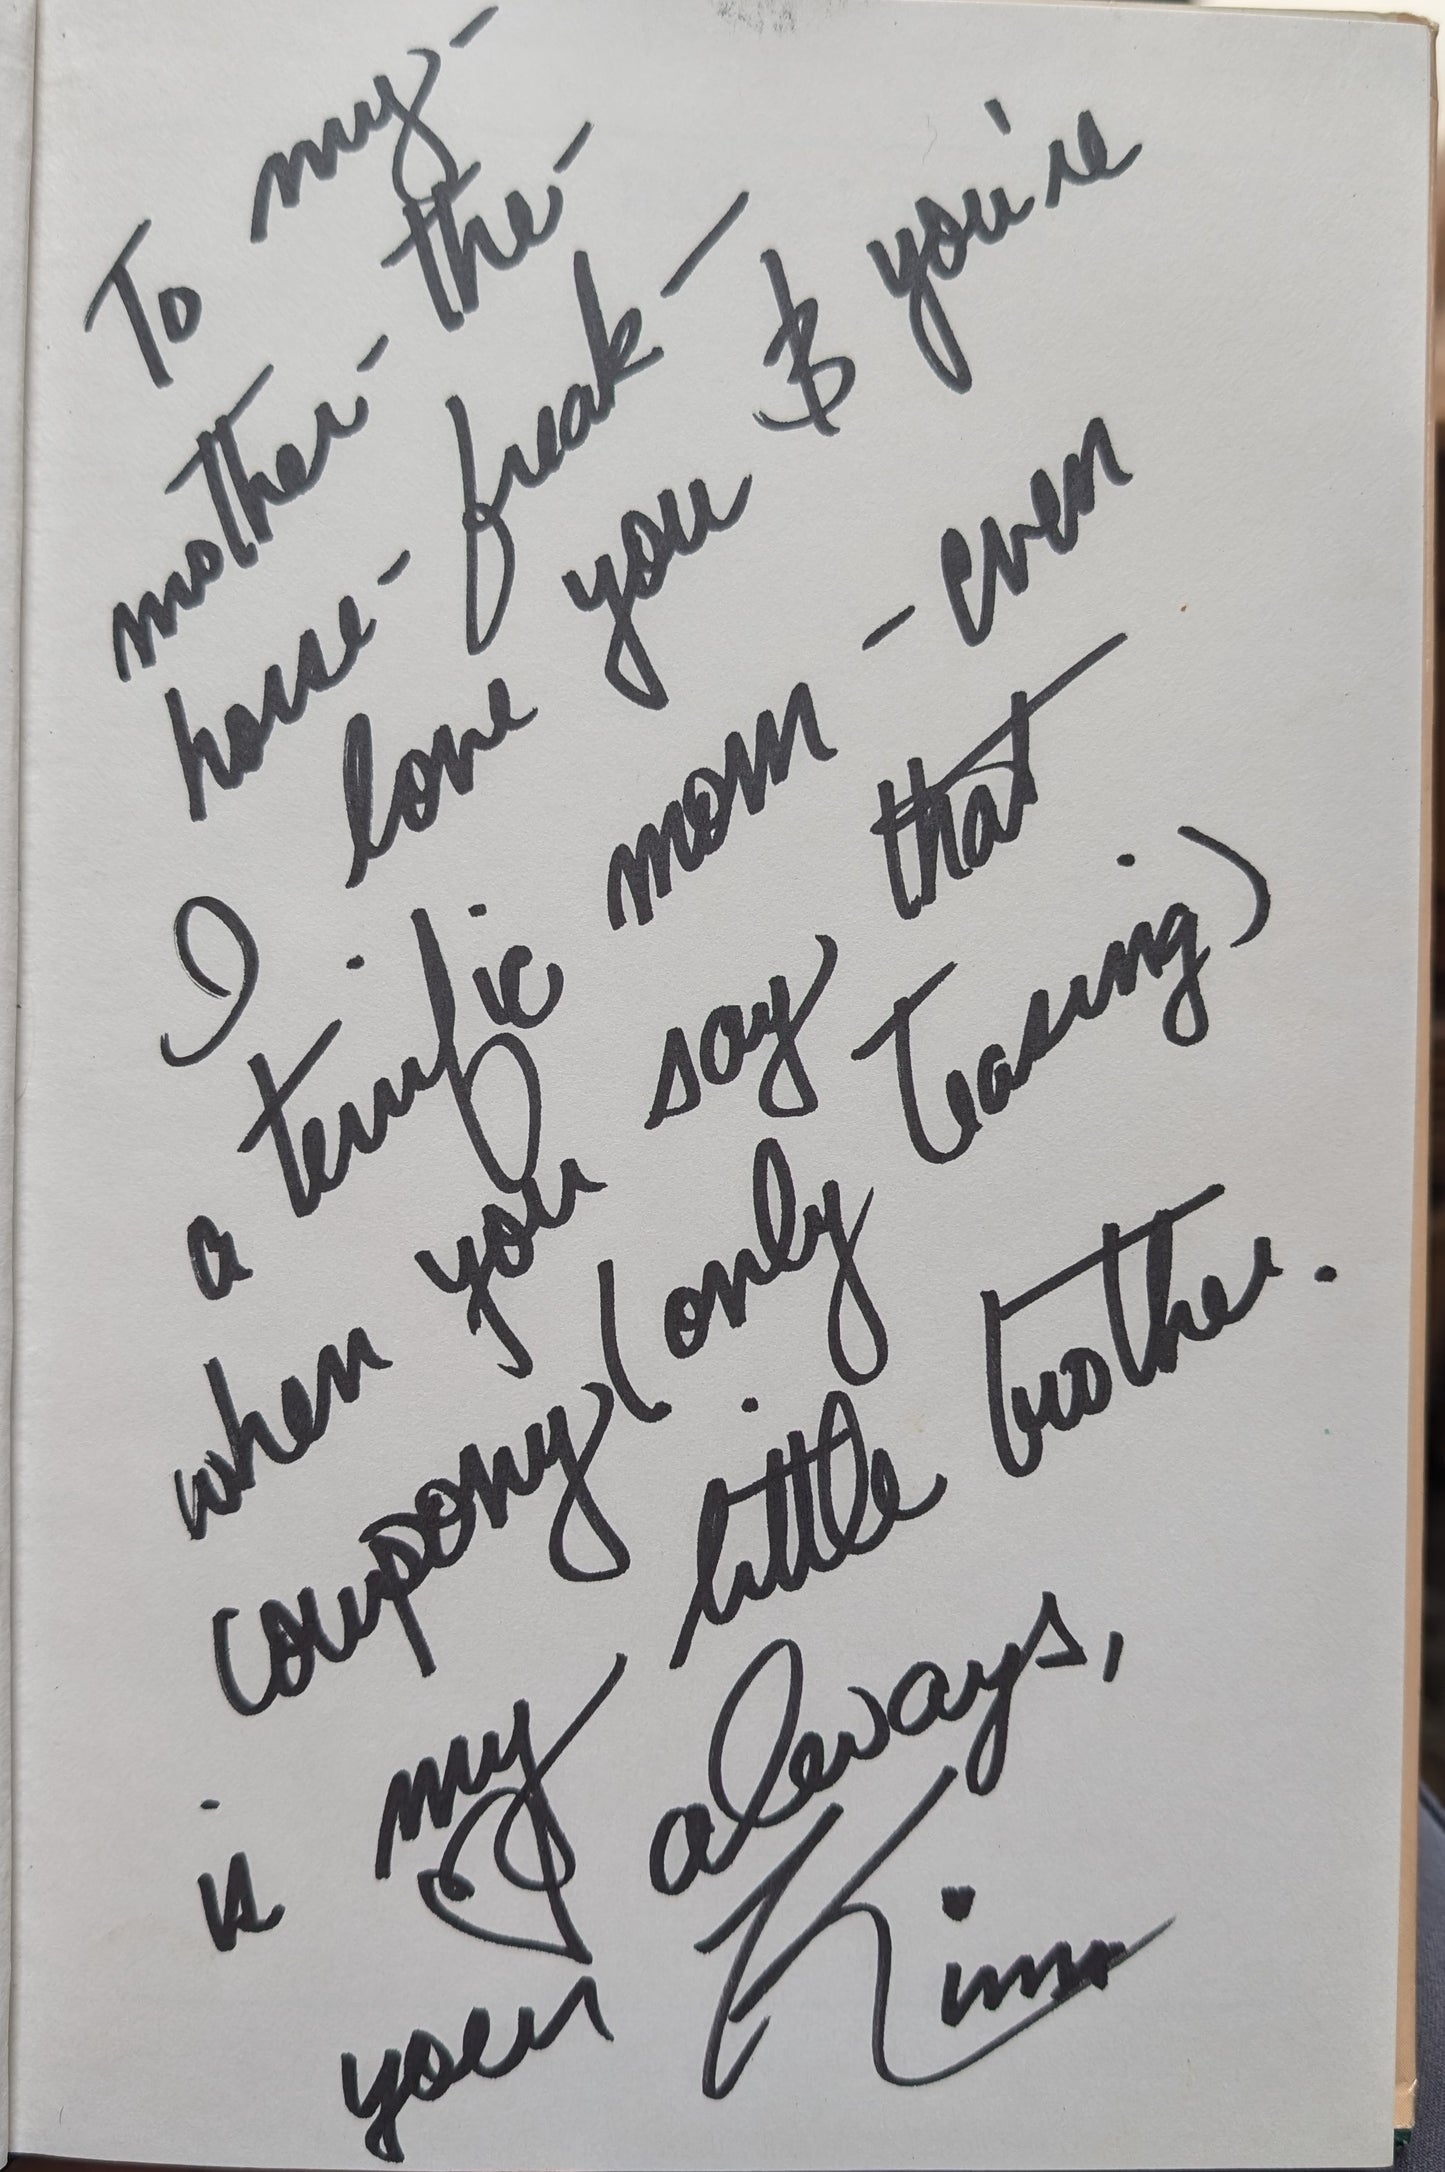 To my-
mother-the-
horse-freak-
I love you & you're
a terrific mom - even
when you say that
coupony (only teasing)
is my little brother.
♡ always,
your Kim